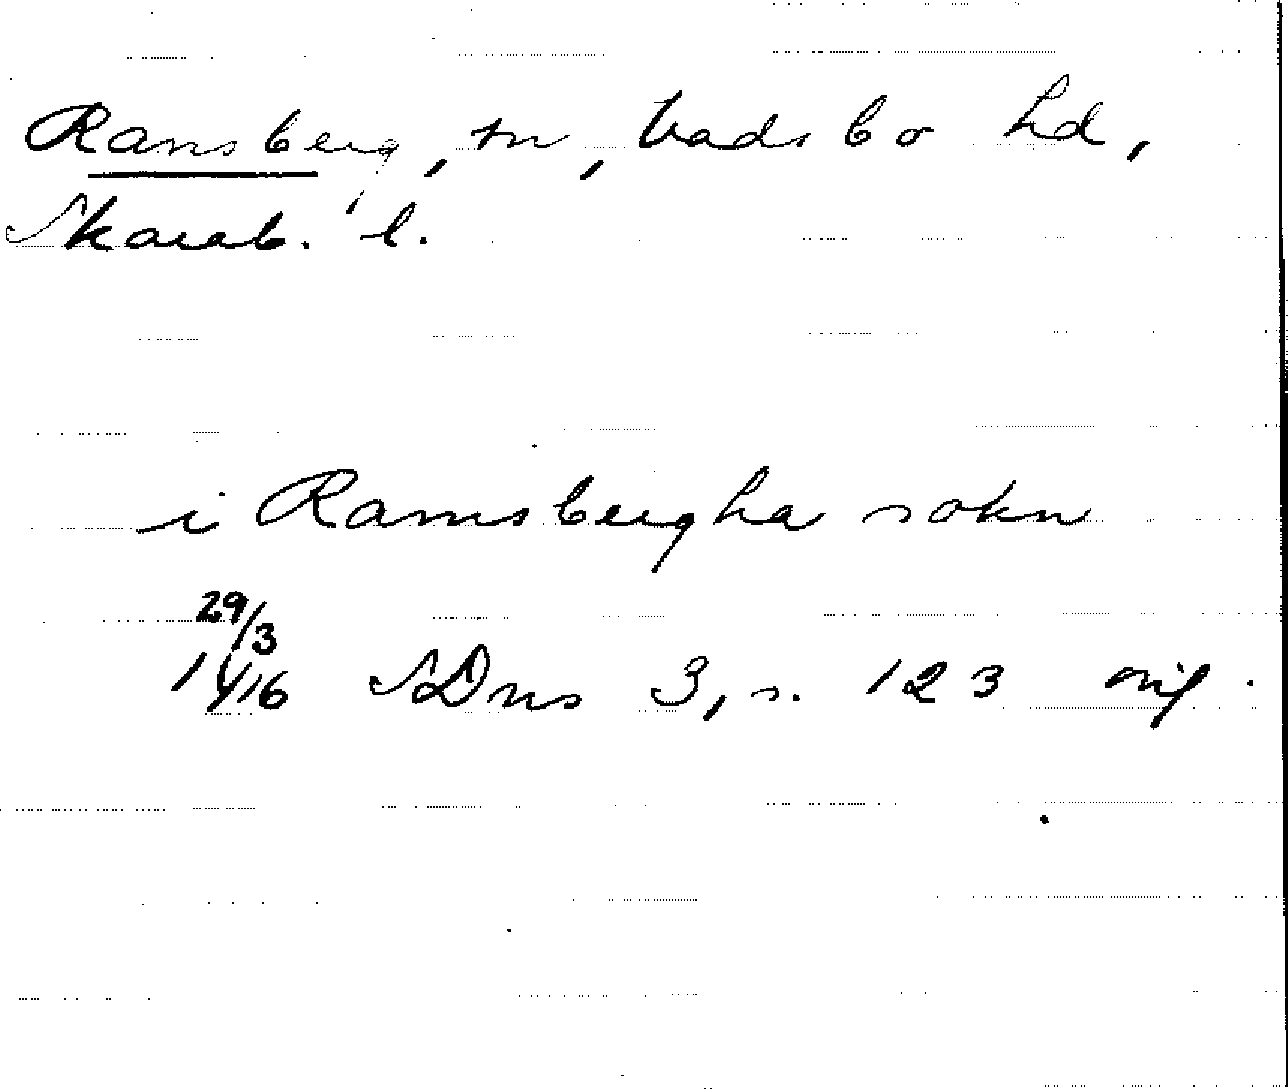 Ransberg, sn, Vadsbo hd,
Skarab. l.
i Ramsbergha sokn
29/3
1416 SDns 3, s. 123 orig.